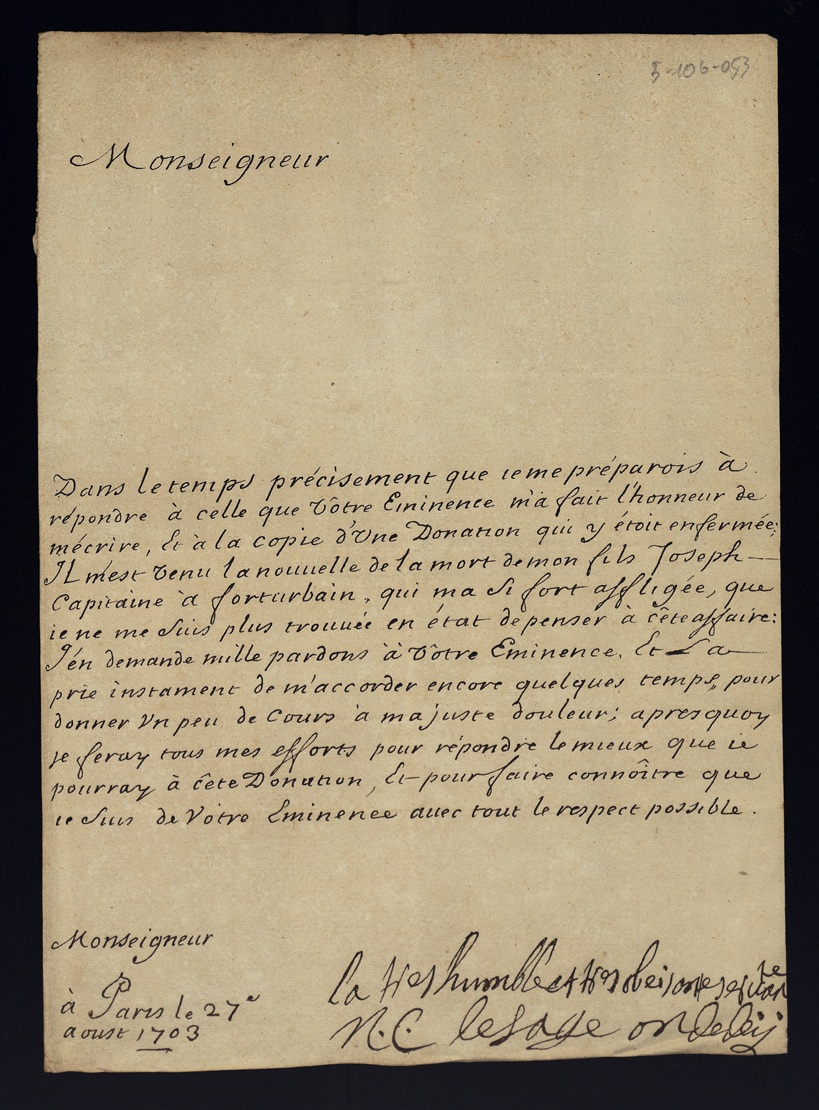 5-106-053
Monseigneur
Dans le temps précisement que ie me préparois à
répondre à celle que Vôtre Eminence m'a fait l'honneur de
mécrire, Et à la copie d'Vne Donation qui y étoit enfermée;
Il m'est Venu la nouuelle de la mort de mon fils Joseph
Capitaine à forturbain, qui ma Si fort affligée, que
ie ne me Suis plus trouuée en état de penser à cête affaire:
J'én demande mille pardons à Vôtre Eminence. Et La
prie instament de m'accorder encore quelques temps, pour
donner Vn peu de Cours à ma juste douleur; apres quoy
je feray tous mes efforts pour répondre le mieux que ie
pourray à cête Donation, Et pour faire connoître que
ie Suis de Vôtre Eminence auec tout le respect possible.
Monseigneur
la tres humble et tres obeisante seruante
à Paris le 27e
N.C. le Sage
aoust 1703